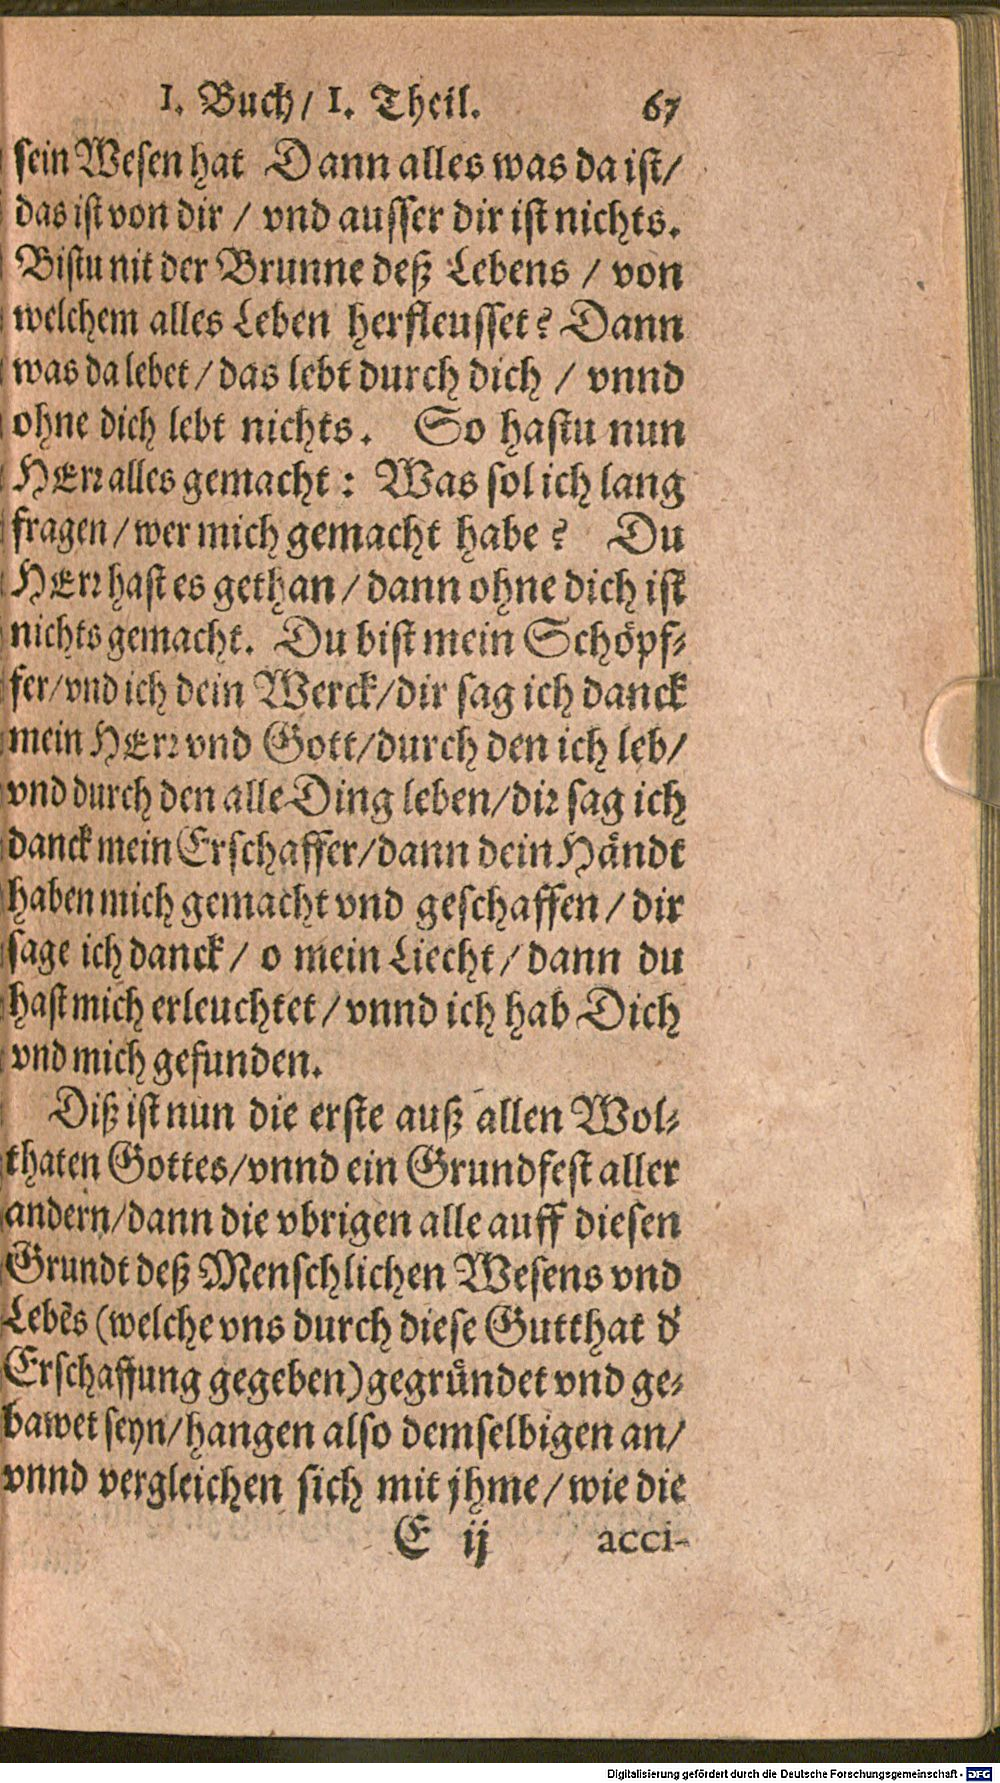 I. Buch/ I. Theil. 67
sein Wesen hat Dann alles was da ist/
das ist von dir / vnd ausser dir ist nichts.
Bistu nit der Brunne deß Lebens / von
welchem alles Leben herfleusset? Dann
was da lebet / das lebt durch dich / vnnd
ohne dich lebt nichts. So hastu nun
HErr alles gemacht : Was sol ich lang
fragen / wer mich gemacht habe ? Du
HErr hast es gethan / dann ohne dich ist
nichts gemacht. Du bist mein Schöpf-
fer/vnd ich dein Werck/dir sag ich danck
mein HErr vnd Gott/durch den ich leb/
vnd durch den alle Ding leben/dir sag ich
danck mein Erschaffer/dann dein Händt
haben mich gemacht vnd geschaffen / dir
sage ich danck / o mein Liecht / dann du
hast mich erleuchtet / vnnd ich hab Dich
vnd mich gefunden.
Diß ist nun die erste auß allen Wol-
thaten Gottes/vnnd ein Grundfest aller
andern/dann die vbrigen alle auff diesen
Grundt deß Menschlichen Wesens vnd
Lebēs (welche vns durch diese Gutthat d'
Erschaffung gegeben) gegründet vnd ge-
bawet seyn/hangen also demselbigen an/
vnnd vergleichen sich mit jhme / wie die
E ij acci-
Digitalisierung gefördert durch die Deutsche Forschungsgemeinschaft - DFG